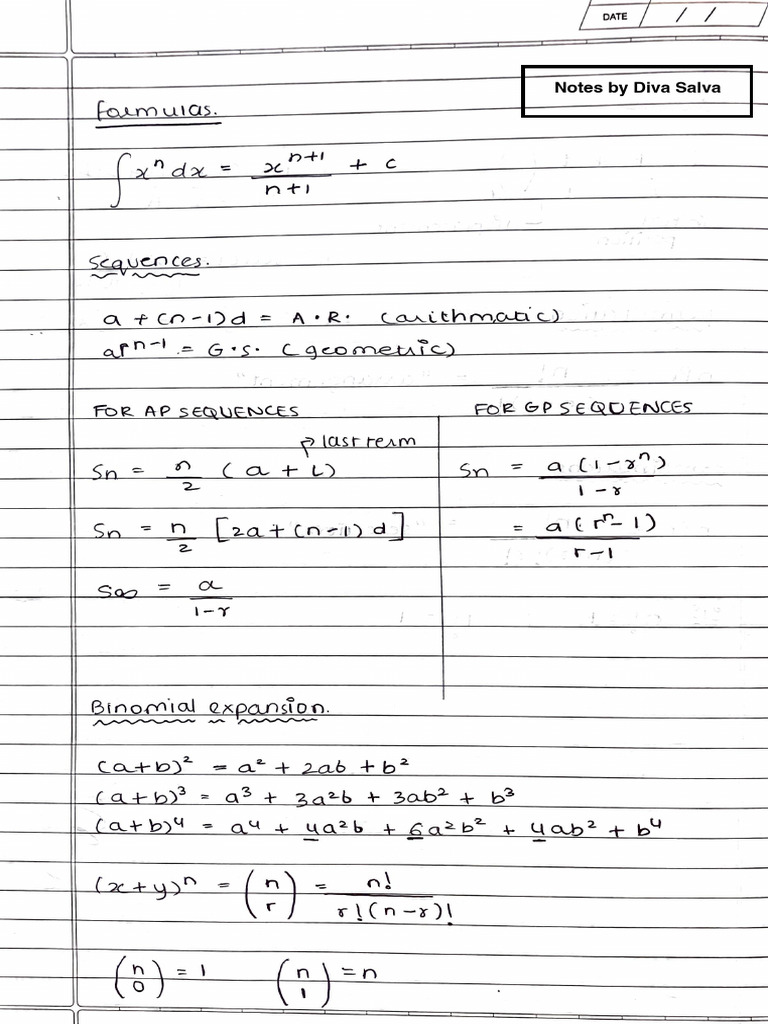 DATE / /
Notes by Diva Salva
Formulas.
∫xⁿ dx = xⁿ⁺¹/n+1 + c
Sequences.
a + (n-1)d = A.R. (arithmatic)
arⁿ⁻¹ = G.S. (geometric)
FOR AP SEQUENCES
last term
Sn = n/2 (a + L)
Sn = n/2 [2a + (n-1) d]
S∞ = a/1-r
FOR GP SEQUENCES
Sn = a (1-rⁿ)/1-r
= a (rⁿ-1)/r-1
Binomial expansion.
(a+b)² = a² + 2ab + b²
(a+b)³ = a³ + 3a²b + 3ab² + b³
(a+b)⁴ = a⁴ + 4a²b + 6a²b² + 4ab² + b⁴
(x+y)ⁿ = (n r) = n!/r!(n-r)!
(n 0) = 1 (n 1) = n